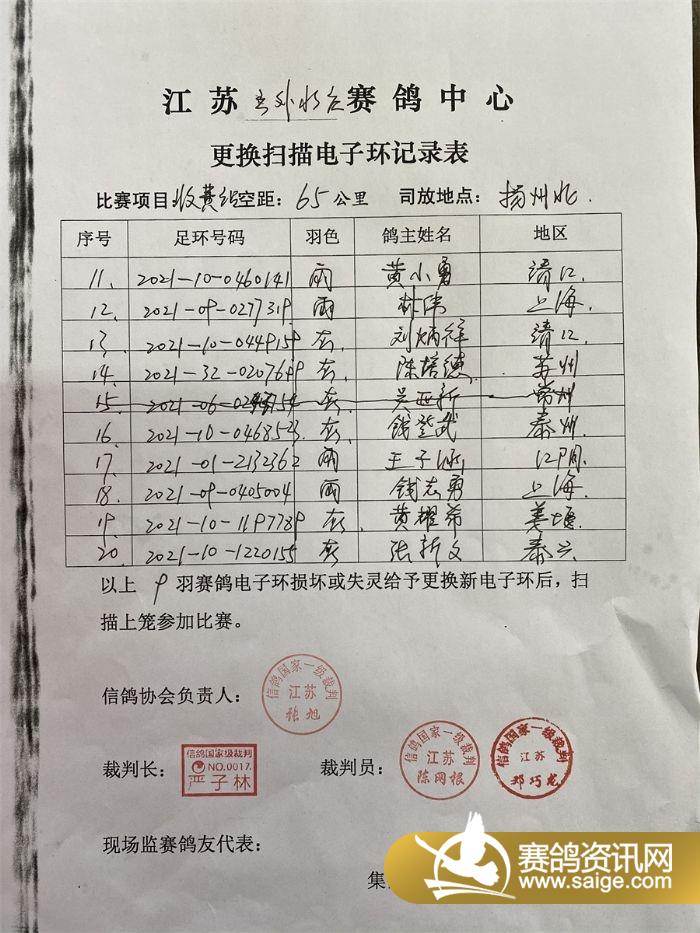 江苏 赛鸽中心
更换扫描电子环记录表
比赛项目收费组空距：65公里 司放地点：扬州北.
序号 足环号码 羽色 鸽主姓名 地区
11、 2021-10-0460141 雨 黄小勇 靖江.
12、 2021-09-0277319 雨 林伟 上海.
13、 2021-10-0449159 灰. 刘炳祥 靖江.
14、 灰. 陈培德 苏州
15、 灰. 吴亚新 常州
16、 2021-10-0468523 灰. 钱登武 泰州.
17、 2021-01-2132362 雨 江阴.
18、 2021-09-0405004 雨 钱志勇 上海.
19、 2021-10-1197739 灰. 姜堰
20、 2021-10-1220155 灰 张新文 泰兴
以上 9 羽赛鸽电子环损坏或失灵给予更换新电子环后，扫
描上笼参加比赛。
信鸽协会负责人：
信鸽国家一级裁判
江苏
张旭
裁判长：
信鸽国家级裁判
NO.0017.
严子林
裁判员：
信鸽国家一级裁判
江苏
陈网根
信鸽国家一级裁判
江苏
郑巧龙
现场监赛鸽友代表：
集
赛鸽资讯网
www.saige.com